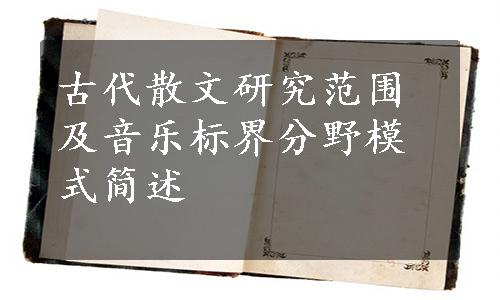 古代散文研究范围
及音乐标界分野模
式简述